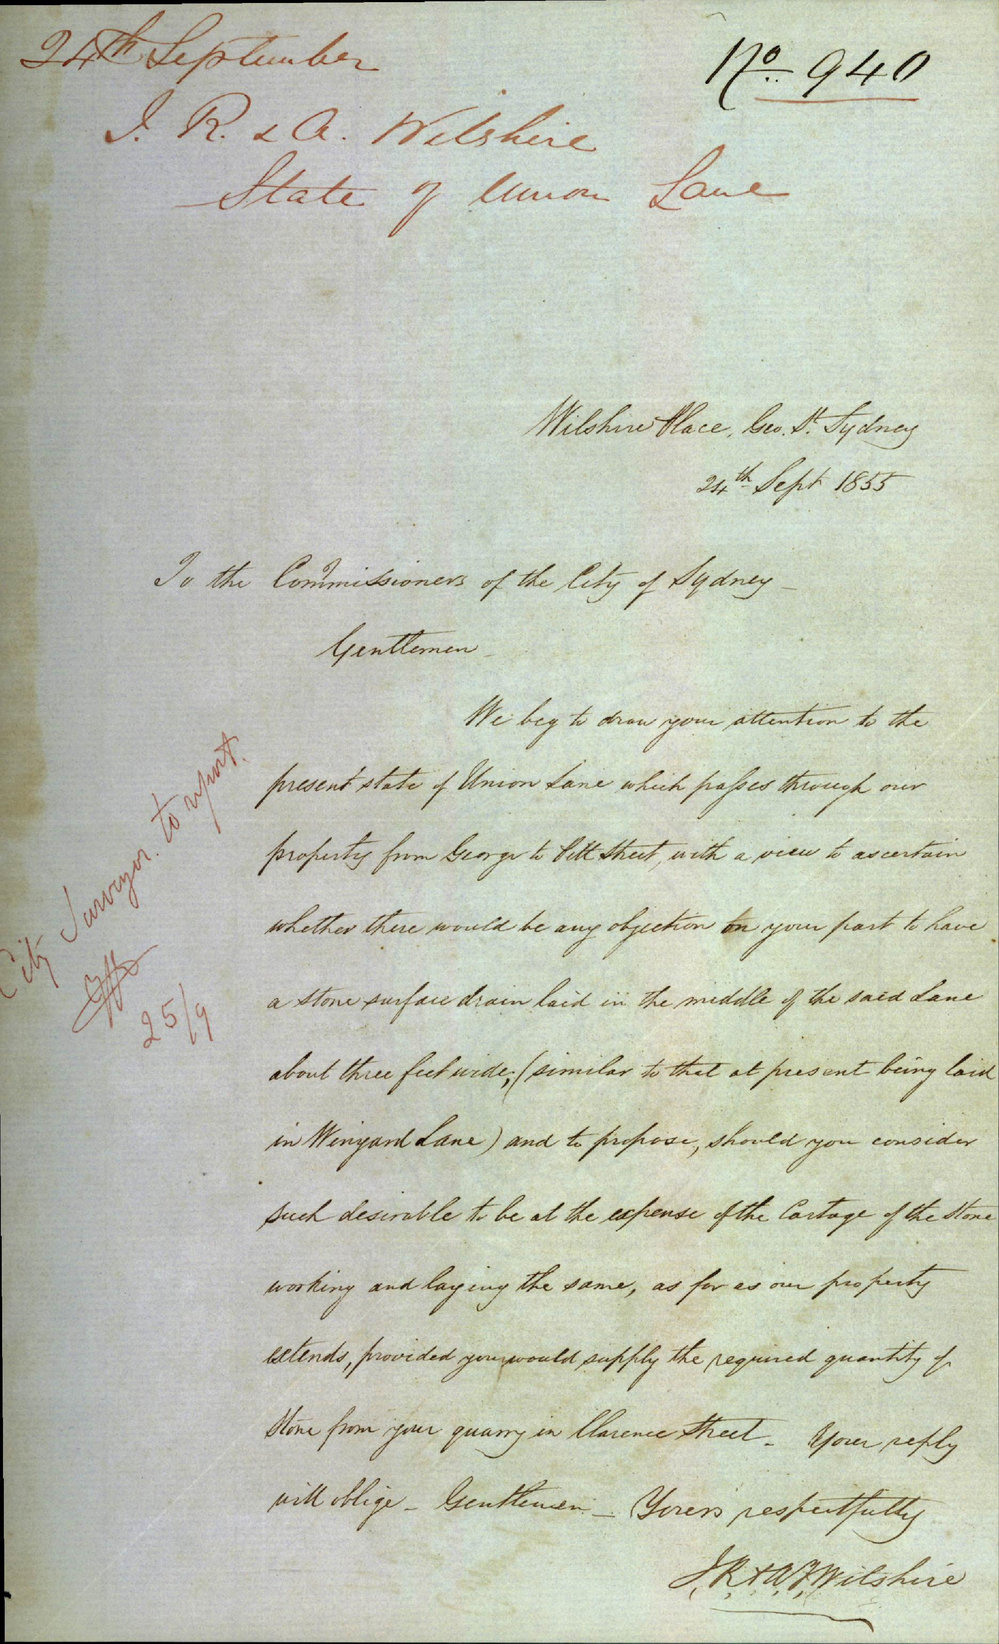 24th September
No. 940
J. R. & A. Wilshire
State of Union Lane
Wilshire Place, Geo. St. Sydney
24th Sept 1855
To the Commissioners of the City of Sydney -
Gentlemen -
We beg to draw your attention to the
present state of Union Lane which passes through our
property from George to Pitt Street, with a view to ascertain
whether there would be any objection on your part to have
a stone surface drain laid in the middle of the said Lane
about three feet wide, (similar to that at present being laid
in Winyard Lane) and to propose, should you consider
such desirable to be at the expense of the Cartage of the Stone
working and laying the same, as far as our property
extends, provided you would supply the required quantity of
Stone from your quarry in Clarence Street - Your reply
will oblige - Gentlemen - Yours respectfully
J, R, & A, F, Wilshire
City Surveyor to report.
25/9